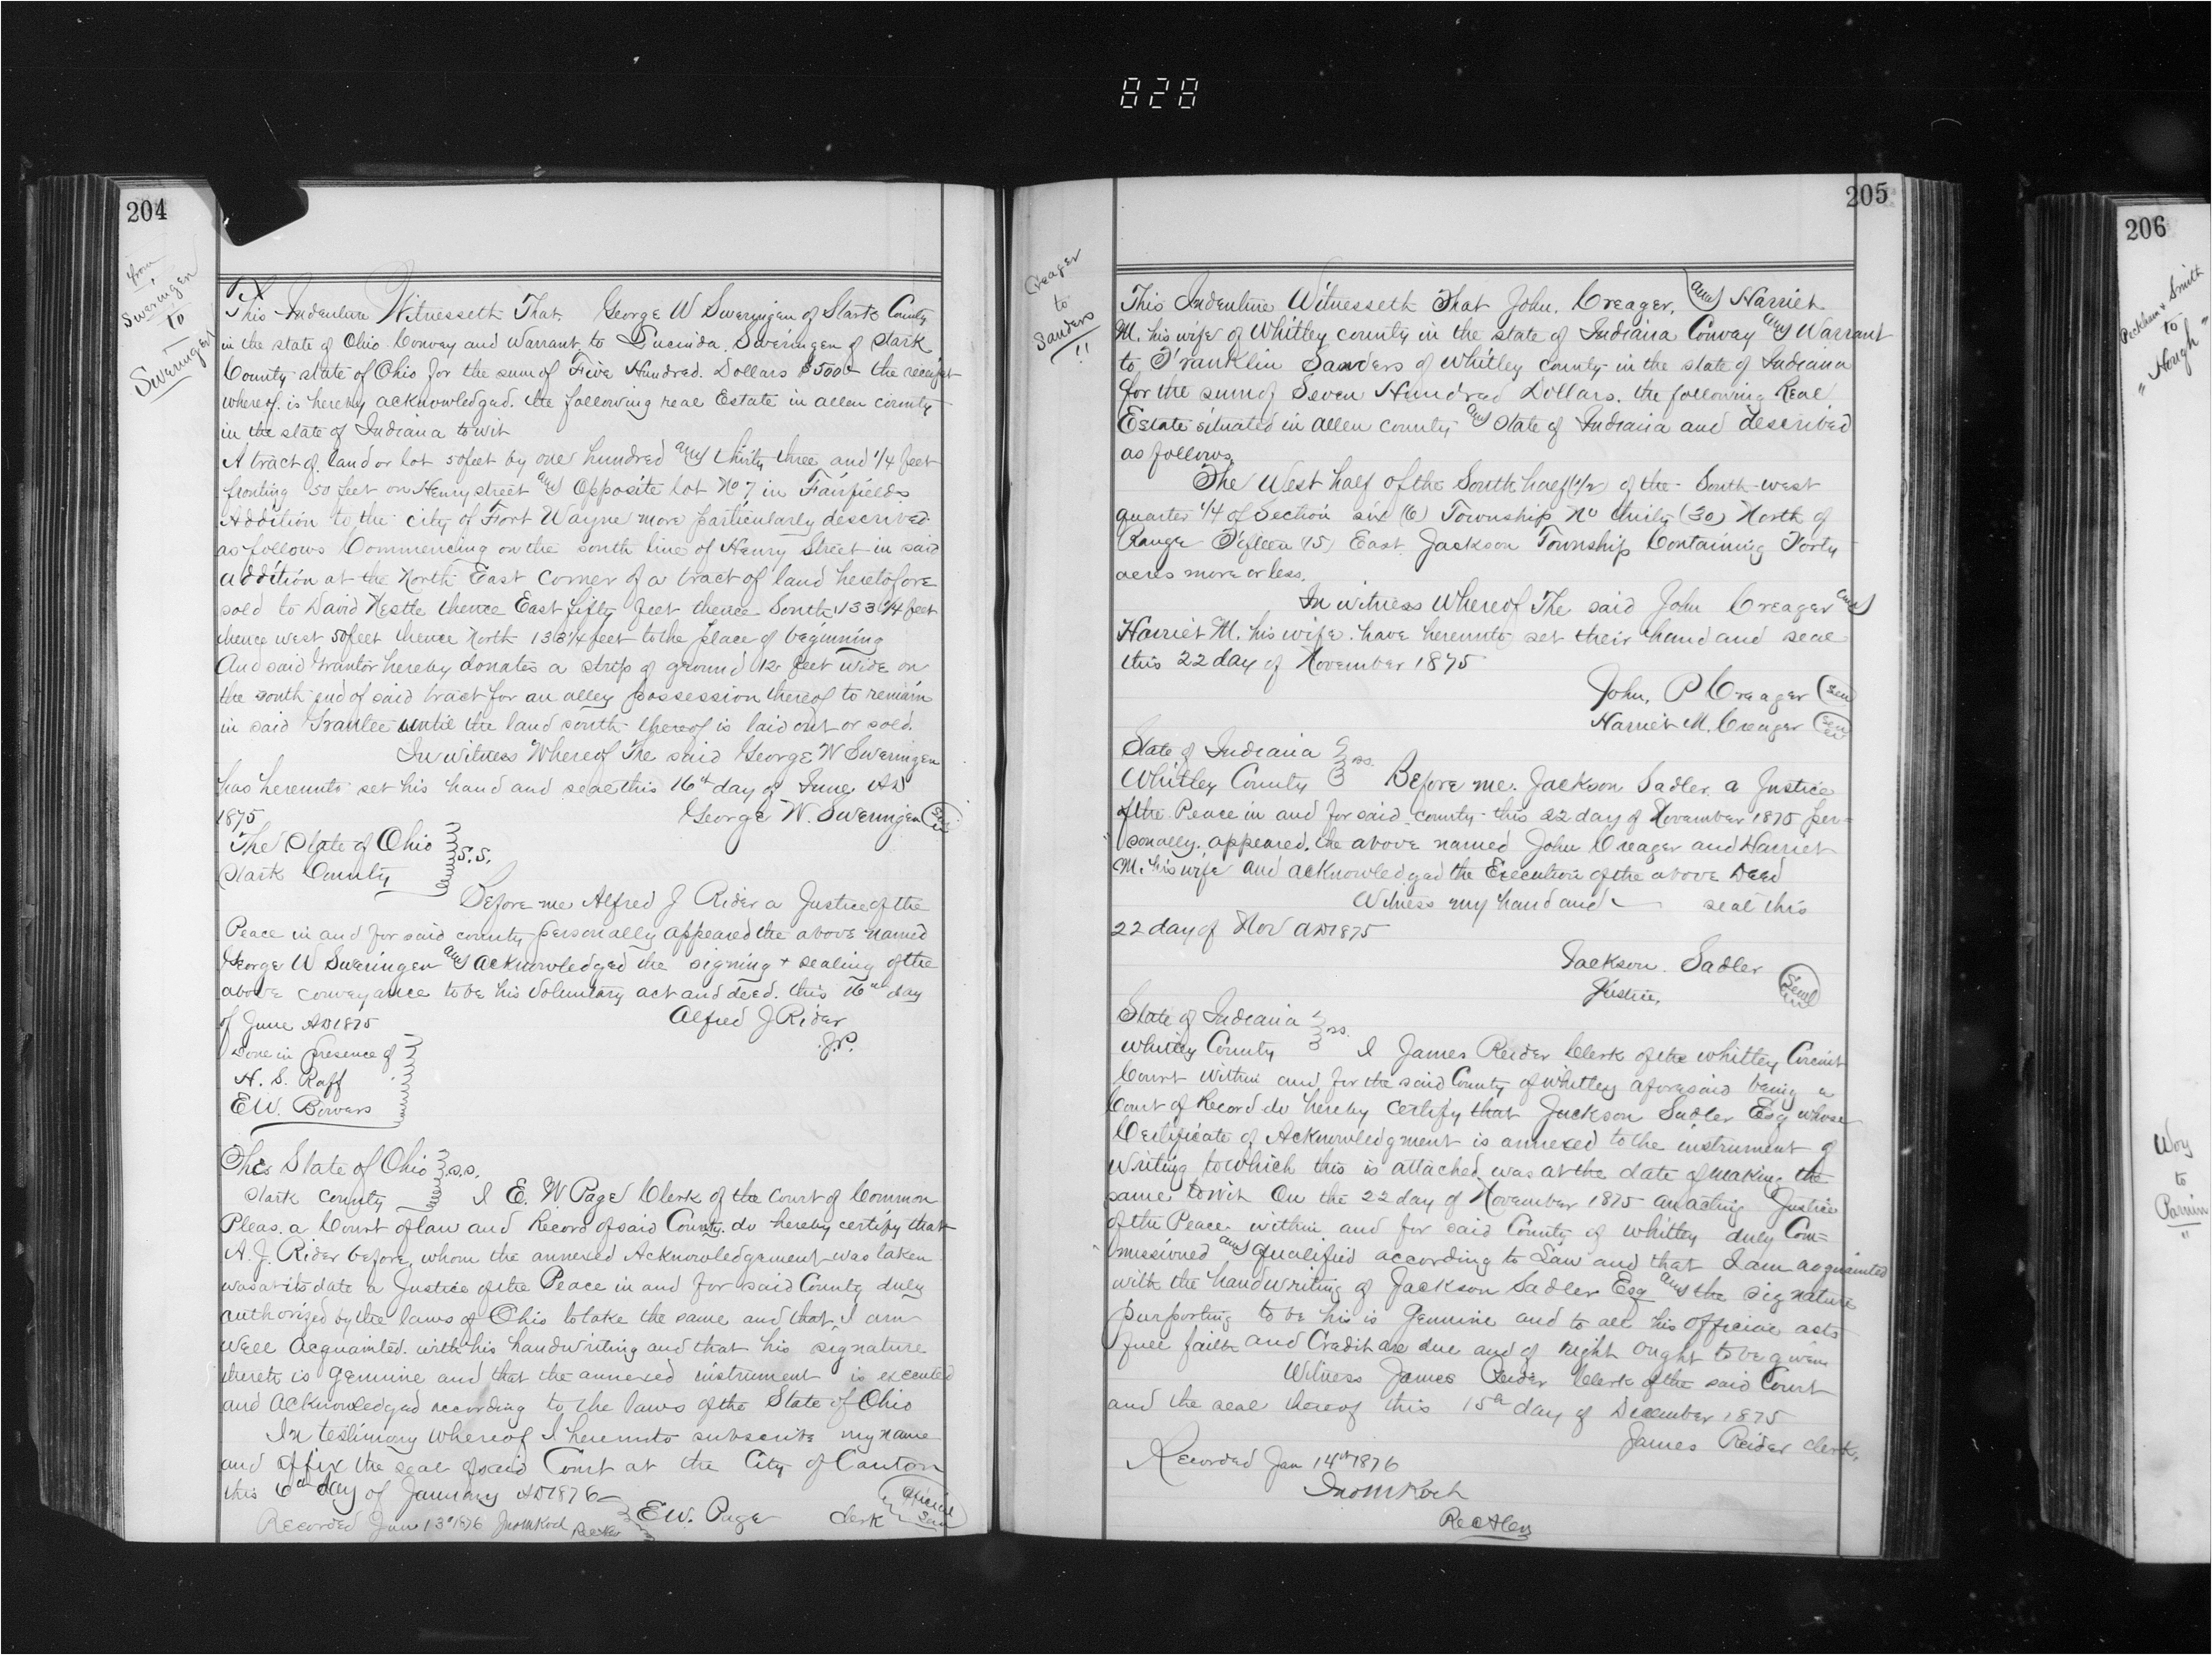 828
204
from
Sweringen
to
Sweringen
This Indenture Witnesseth That. George W Sweringen of Stark County
in the state of Ohio Convey and Warrant to Lucinda. Sweringen of Stark
County state of Ohio for the sum of Five Hundred. Dollars $500 the receipt
whereof. is hereby acknowledged. the following real Estate in allen county
in the state of Indiana to wit
A tract of land or lot 50 feet by one hundred and thirty three and 1/4 feet
fronting 50 feet on Henry street and opposite lot No 7 in Fairfields
Addition to the city of Fort Wayne more particularly described
as follows Commencing on the south line of Henry Street in said
addition at the North East corner of a tract of land heretofore
sold to David Nestle thence East fifty feet thence South 133 1/4 feet
thence west 50 feet thence North 133 1/4 feet to the place of beginning
And said Grantor hereby donates a strip of ground 12 feet wide on
the south end of said tract for an alley possession thereof to remain
in said Grantee until the land south thereof is laid out or sold.
In witness Whereof The said George W Sweringen
has hereunto set his hand and seal this 16th day of June AD
1875 George W. Sweringen Seal
The State of Ohio
Stark County S.S.
Before me Alfred J Rider a Justice of the
Peace in and for said county personally appeared the above named
George W Sweringen and acknowledged the signing + sealing of the
above conveyance to be his voluntary act and deed. this 16th day
of June AD 1875 Alfred J Rider
J.P.
Done in presence of
H. S. Raff
E.W. Bowers
The State of Ohio s.s.
Stark County I E. W Page Clerk of the Court of Common
Pleas. a Court of law and Record of said County. do hereby certify that
A. J. Rider before whom the annexed Acknowledgement was taken
was at its date a Justice of the Peace in and for said County duly
authorized by the laws of Ohio to take the same and that I am
well acquainted. with his handwriting and that his signature
thereto is genuine and that the annexed instrument is executed
and acknowledged according to the laws of the State of Ohio
In testimony whereof I hereunto subscribe my name
and affix the seal of said Court at the City of Canton
this 6th day of January AD 1876
E.W. Page Clerk Official Seal
Recorded Jan 13th 1876 Jno M Koch Recder
205
Creager
to
Sanders
This Indenture Witnesseth That John. Creager, and Harriet
M. his wife of Whitley county in the state of Indiana Convay and Warrant
to Franklin Sanders of Whitley county in the state of Indiana
for the sum of Seven Hundred Dollars. the following Real
Estate situated in allen county and State of Indiana and described
as follows.
The West half of the South half (1/2) of the South west
quarter 1/4 of Section six (6) Township No thirty (30) North of
Range Fifteen (15) East. Jackson Township Containing Forty
acres more or less.
In witness Whereof The said John Creager and
Harriet M. his wife. have hereunto set their hand and seal
this 22 day of November 1875
John. P Creager Seal
Harriet M. Creager Seal
State of Indiana
Whitley County ss. Before me. Jackson Sadler. a Justice
of the Peace in and for said county this 22 day of November 1875 per=
sonally. appeared. the above named John Creager and Harriet
M. his wife and acknowledged the Execution of the above Deed
Witness my hand and seal this
22 day of Nov AD 1875
Jackson. Sadler
Justice. Seal
State of Indiana
Whitley County ss. I James Reider Clerk of the whitley Circuit
Court within and for the said County of whitley aforesaid being a
Court of Record do hereby certify that Jackson Sadler Esq whose
Certificate of Acknowledgment is annexed to the instrument of
writing to which this is attached was at the date of making the
same to wit On the 22 day of November 1875 an acting Justice
of the Peace within and for said County of whitley duly Com=
missioned and qualified according to Law and that I am acquainted
with the handwriting of Jackson Sadler Esq and the signature
purporting to be his is Genuine and to all his official acts
full faith and Cradit are due and of right ought to be given
Witness James Reider Clerk of the said Court
and the seal thereof this 15th day of December 1875
James Reider Clerk.
Recorded Jan 14th 1876
Jno M Koch
Recder
206
Peckham & Smith
to
" Hough "
Woy
to
Parnin
"